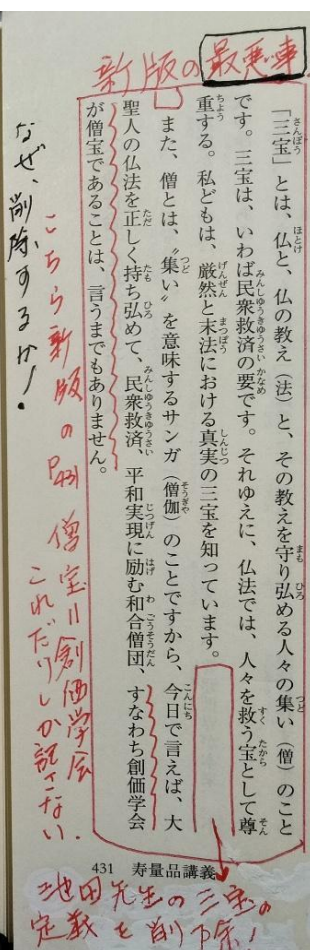 新版の最悪事
「三宝」とは、仏と、仏の教え（法）と、その教えを守り弘める人々の集い（僧）のこと
です。三宝は、いわば民衆救済の要です。それゆえに、仏法では、人々を救う宝として尊
重する。私どもは、厳然と末法における真実の三宝を知っています。
また、僧とは、〝集い〟を意味するサンガ（僧伽）のことですから、今日で言えば、大
聖人の仏法を正しく持ち弘めて、民衆救済、平和実現に励む和合僧団、すなわち創価学会
が僧宝であることは、言うまでもありません。
こちら新版のP431 僧宝＝創価学会
これだけしか記さない．
なぜ、削除するか！
431 寿量品講義
池田先生の三宝の
定義を削除！